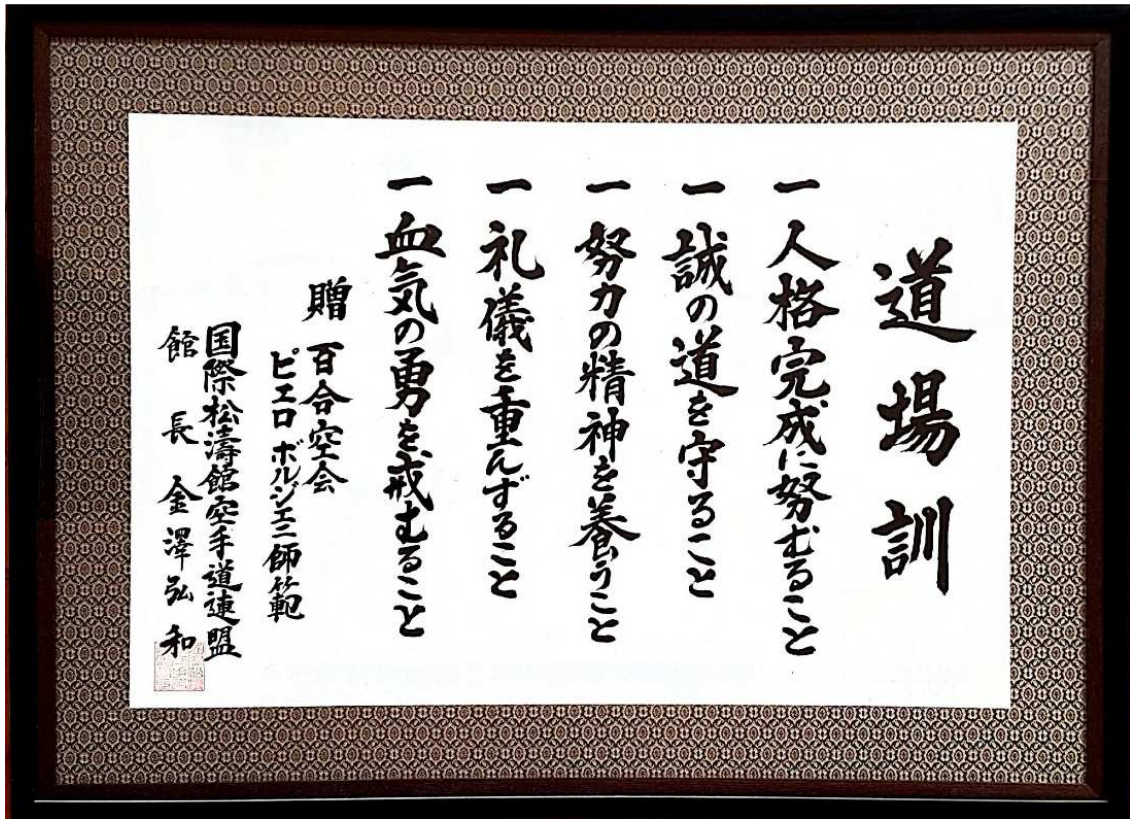 道場訓
一 人格完成に努むること
一 誠の道を守ること
一 努力の精神を養うこと
一 礼儀を重んずること
一 血気の勇を戒むること
贈 百合空会
ピエロ ボルジエニ師範
国際松濤館空手道連盟
館長 金澤弘和